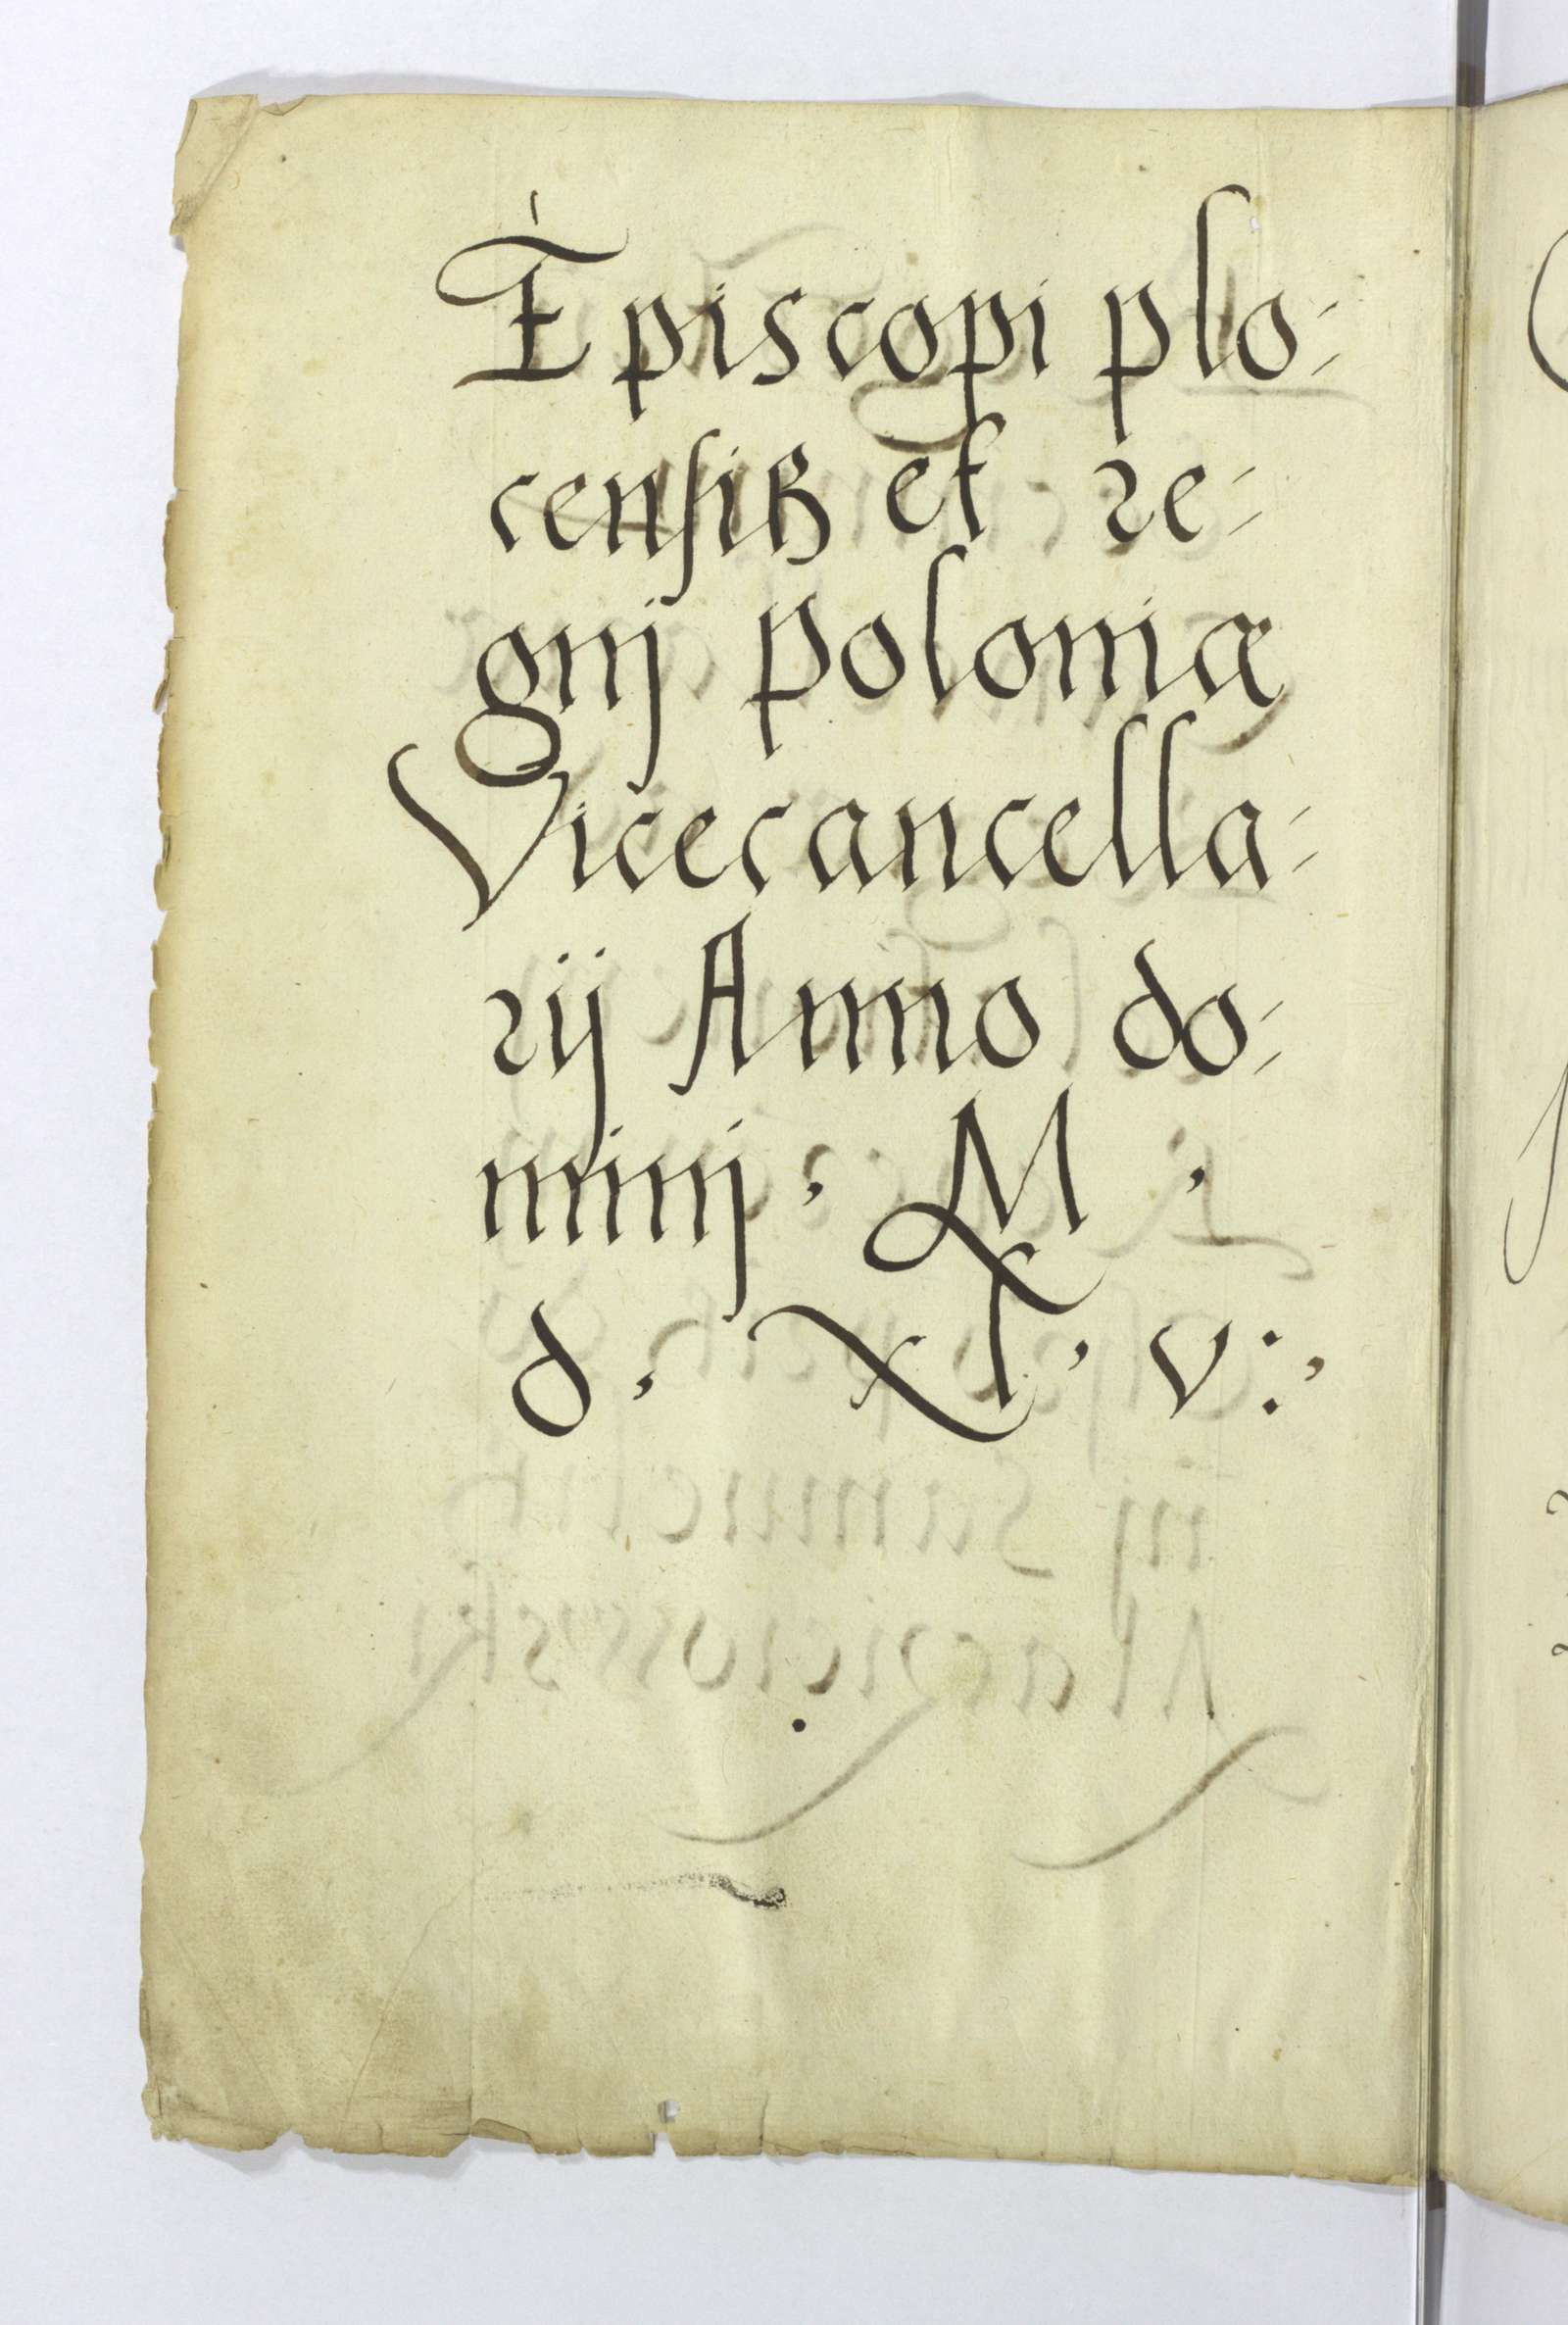 Episcopi plo⸗
censis et re⸗
gnij poloniæ
Vicecancella⸗
rij Anno do⸗
minij, M,
d, XL, v:,